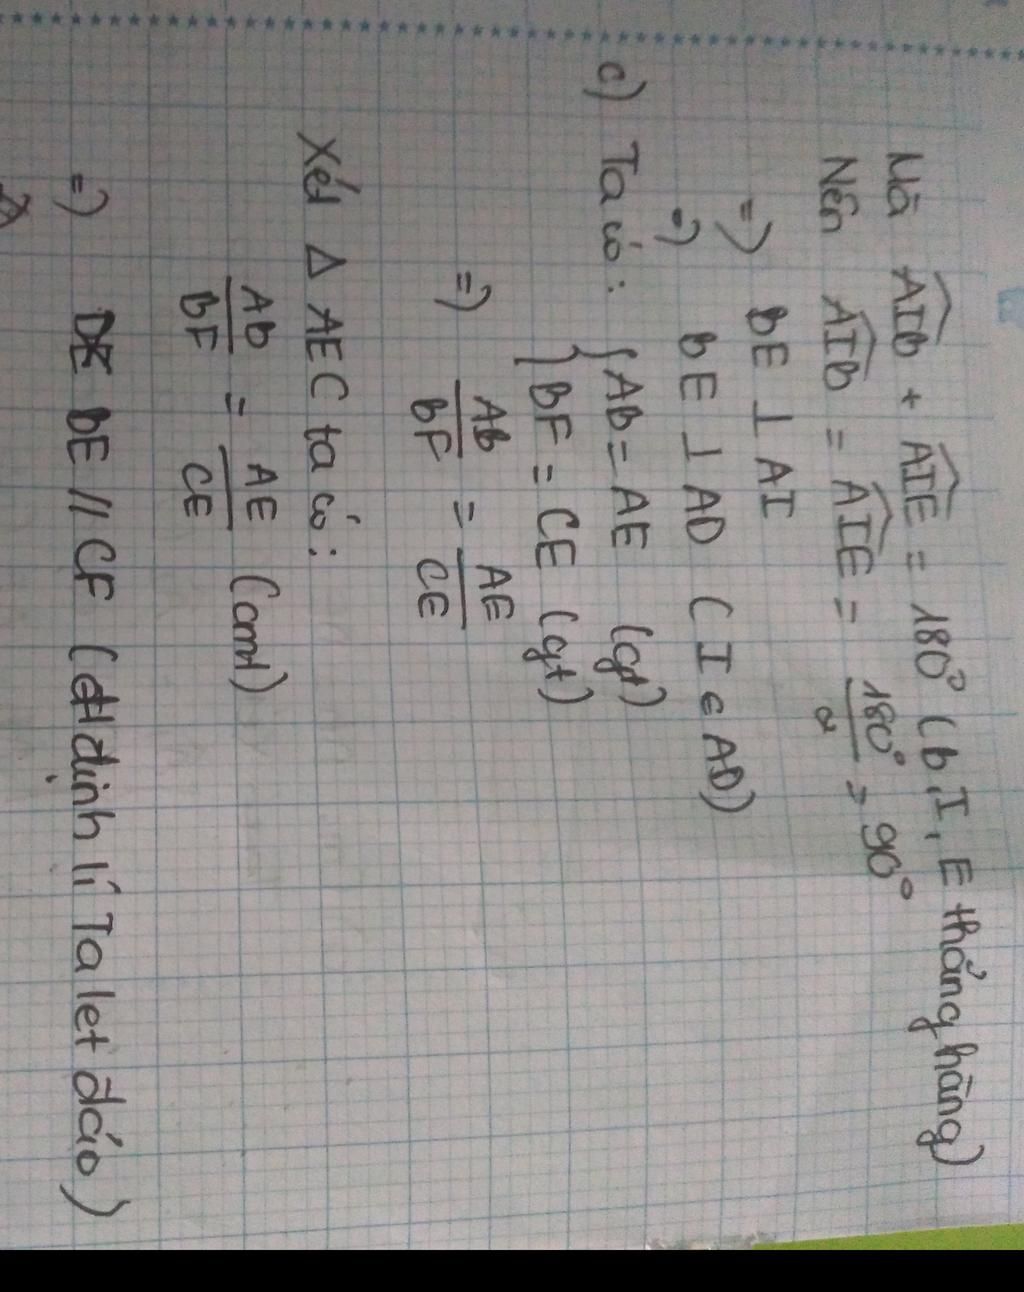 Mà AIB + AIE = 180° (b, I, E thẳng hàng)
Nên AIB = AIE = 180°/2 = 90°
=> bE ⊥ AI
=> bE ⊥ AD (I ∈ AD)
c) Ta có: { Ab = AE (gt)
BF = CE (gt)
=> Ab/BF = AE/CE
Xét Δ AEC ta có:
Ab/BF = AE/CE (cmt)
=> bE // CF (định lí Ta let đảo)